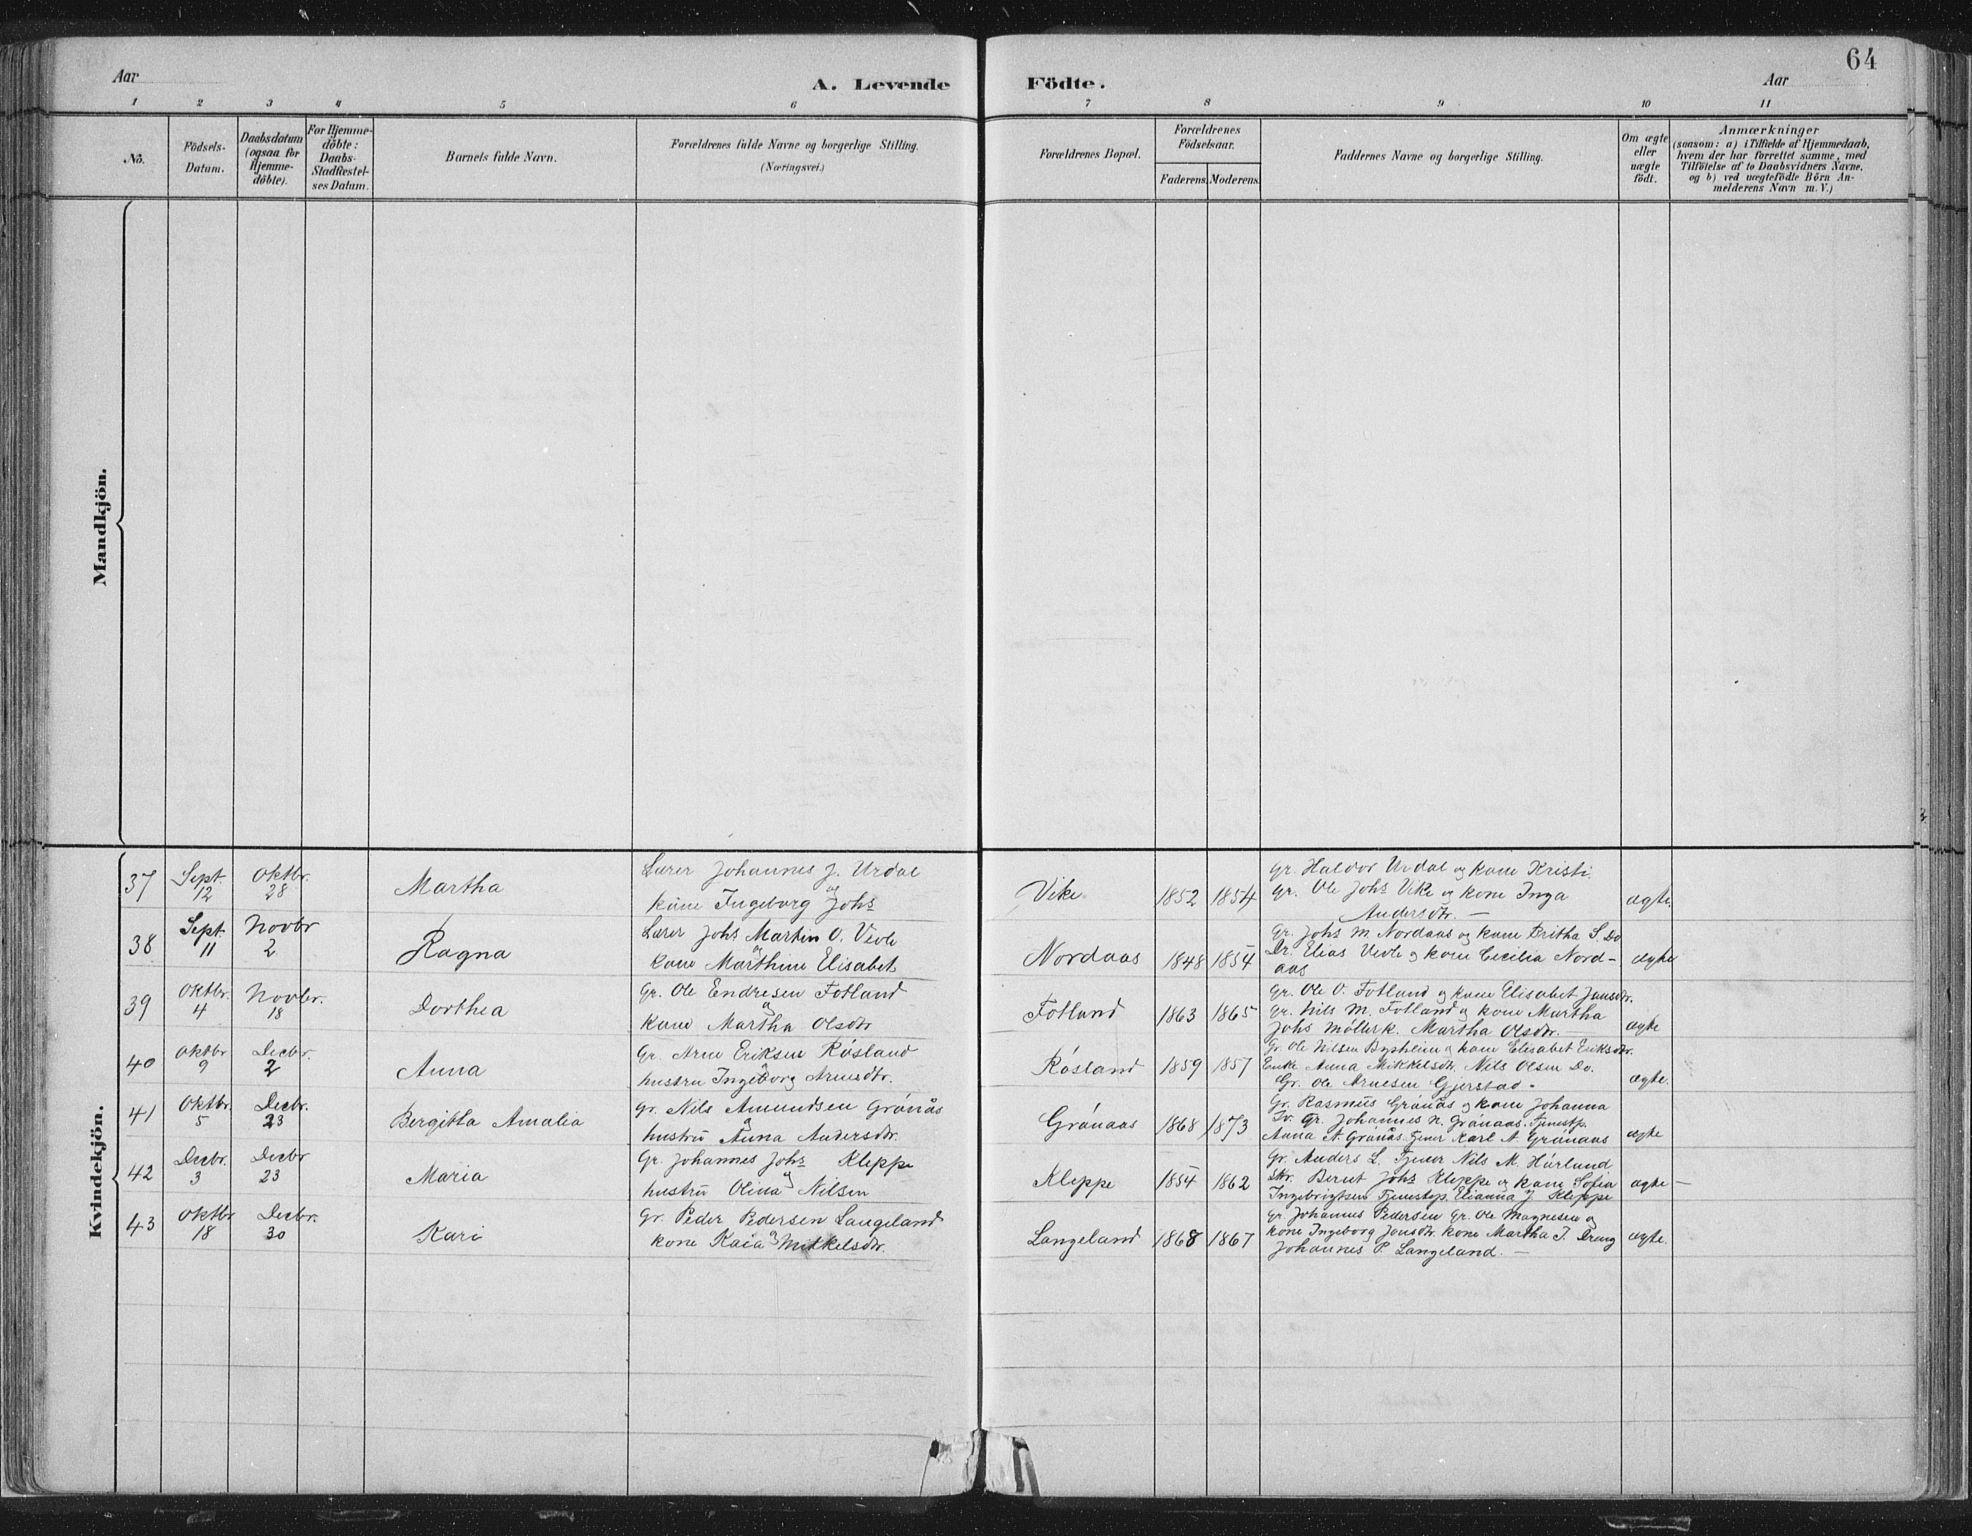 64
Aar
A. Levende
Födte.
Aar
1 2 3 4 5 6 7 8 9 10 11
No.
Födsels-
Datum.
Daabsdatum
(ogsaa for
Hjemme-
döbte).
For Hjemme-
döbte:
Daabs-
Stadfæstel-
ses Datum.
Barnets fulde Navn.
Forældrenes fulde Navne og borgerlige Stilling.
(Næringsvei.)
Forældrenes Bopæl.
Forældrenes
Födselsaar.
Faderens. Moderens.
Faddernes Navne og borgerlige Stilling.
Om ægte
eller
uægte
födt.
Anmærkninger
(saasom: a) i Tilfælde af Hjemmedaab,
hvem der har forrettet samme, med
Tilföielse af to Daabsvidners Navne,
og b) ved uægtefödte Börn An-
melderens Navn m. V.)
Mandkjön.
Kvindekjön.
37 Sept. 12 Oktbr. 28 Martha
Lærer Johannes J. Urdal
og
kone Ingeborg Johs
Vike 1852 1854
Gr. Haldor Urdal og kone Kristi.
Gr. Ole Johs Vike og kone Inga
Andersdtr. —
ægte.
38 Sept. 11 Novbr 2 Ragna
Lærer Johs Martin O. Vevle
og
kone Marthine Elisabet
Nordaas 1848 1854
Gr. Johs M Nordaas og kone Britha S. Do
Dr. Elias Vevle og kone Cecilia Nord-
aas
ægte
39 Oktbr. 4 Novbr. 18 Dorthea
Gr. Ole Endresen Fotland
og
kone Martha Olsdtr
Fotland 1863 1865
Gr. Ole O. Fotland og kone Elisabet Jansdtr.
Gr. Nils M. Fotland og kone Martha
Johs Möllerk. Martha Olsdtr. —
ægte
40 Oktbr 9 Decbr. 2 Anna
Gr. Arne Eriksen Røsland
hustru Ingeborg Arnesdtr.
Røsland 1859 1857
Gr. Ole Nilsen Bysheim og kone Elisabet Eriksdtr.
Enke Anna Mikkelsdtr. Nils Olsen Do.
Gr. Ole Arnesen Gjerstad -
ægte.
41 Oktbr. 5 Decbr. 23 Bergitta Amalia
Gr. Nils Amundsen Grønås
og
hustru Anna Andersdtr.
Grønaas 1868 1873
Gr. Rasmus Grønås og kone Johanna
Do. Gr. Johannes N. Grønaas. Tjenestp.
Anna A. Grønås. Tjener Karl A. Grønaas
ægte
42 Decbr. 3 Decbr 23 Maria
Gr. Johannes Johs Kleppe
og
hustru Olina Nilsen
Kleppe 1854 1862
Gr. Anders L. Tjener Nils M. Hürland
Skr. Bernt Johs Kleppe og kone Sofia
Ingebrigtsen Tjenestep. Elianna J. Kleppe
ægte —
43 Oktbr 18 Decbr. 30 Kari
Gr. Peder Pedersen Langeland
kone Kaia og Mikkelsdtr.
Langeland 1868 1867
Gr. Johannes Pedersen Gr. Ole Magnesen og
kone Ingeborg Jansdtr. kone Martha J. Dreng
Johannes P. Langeland. —
ægte.